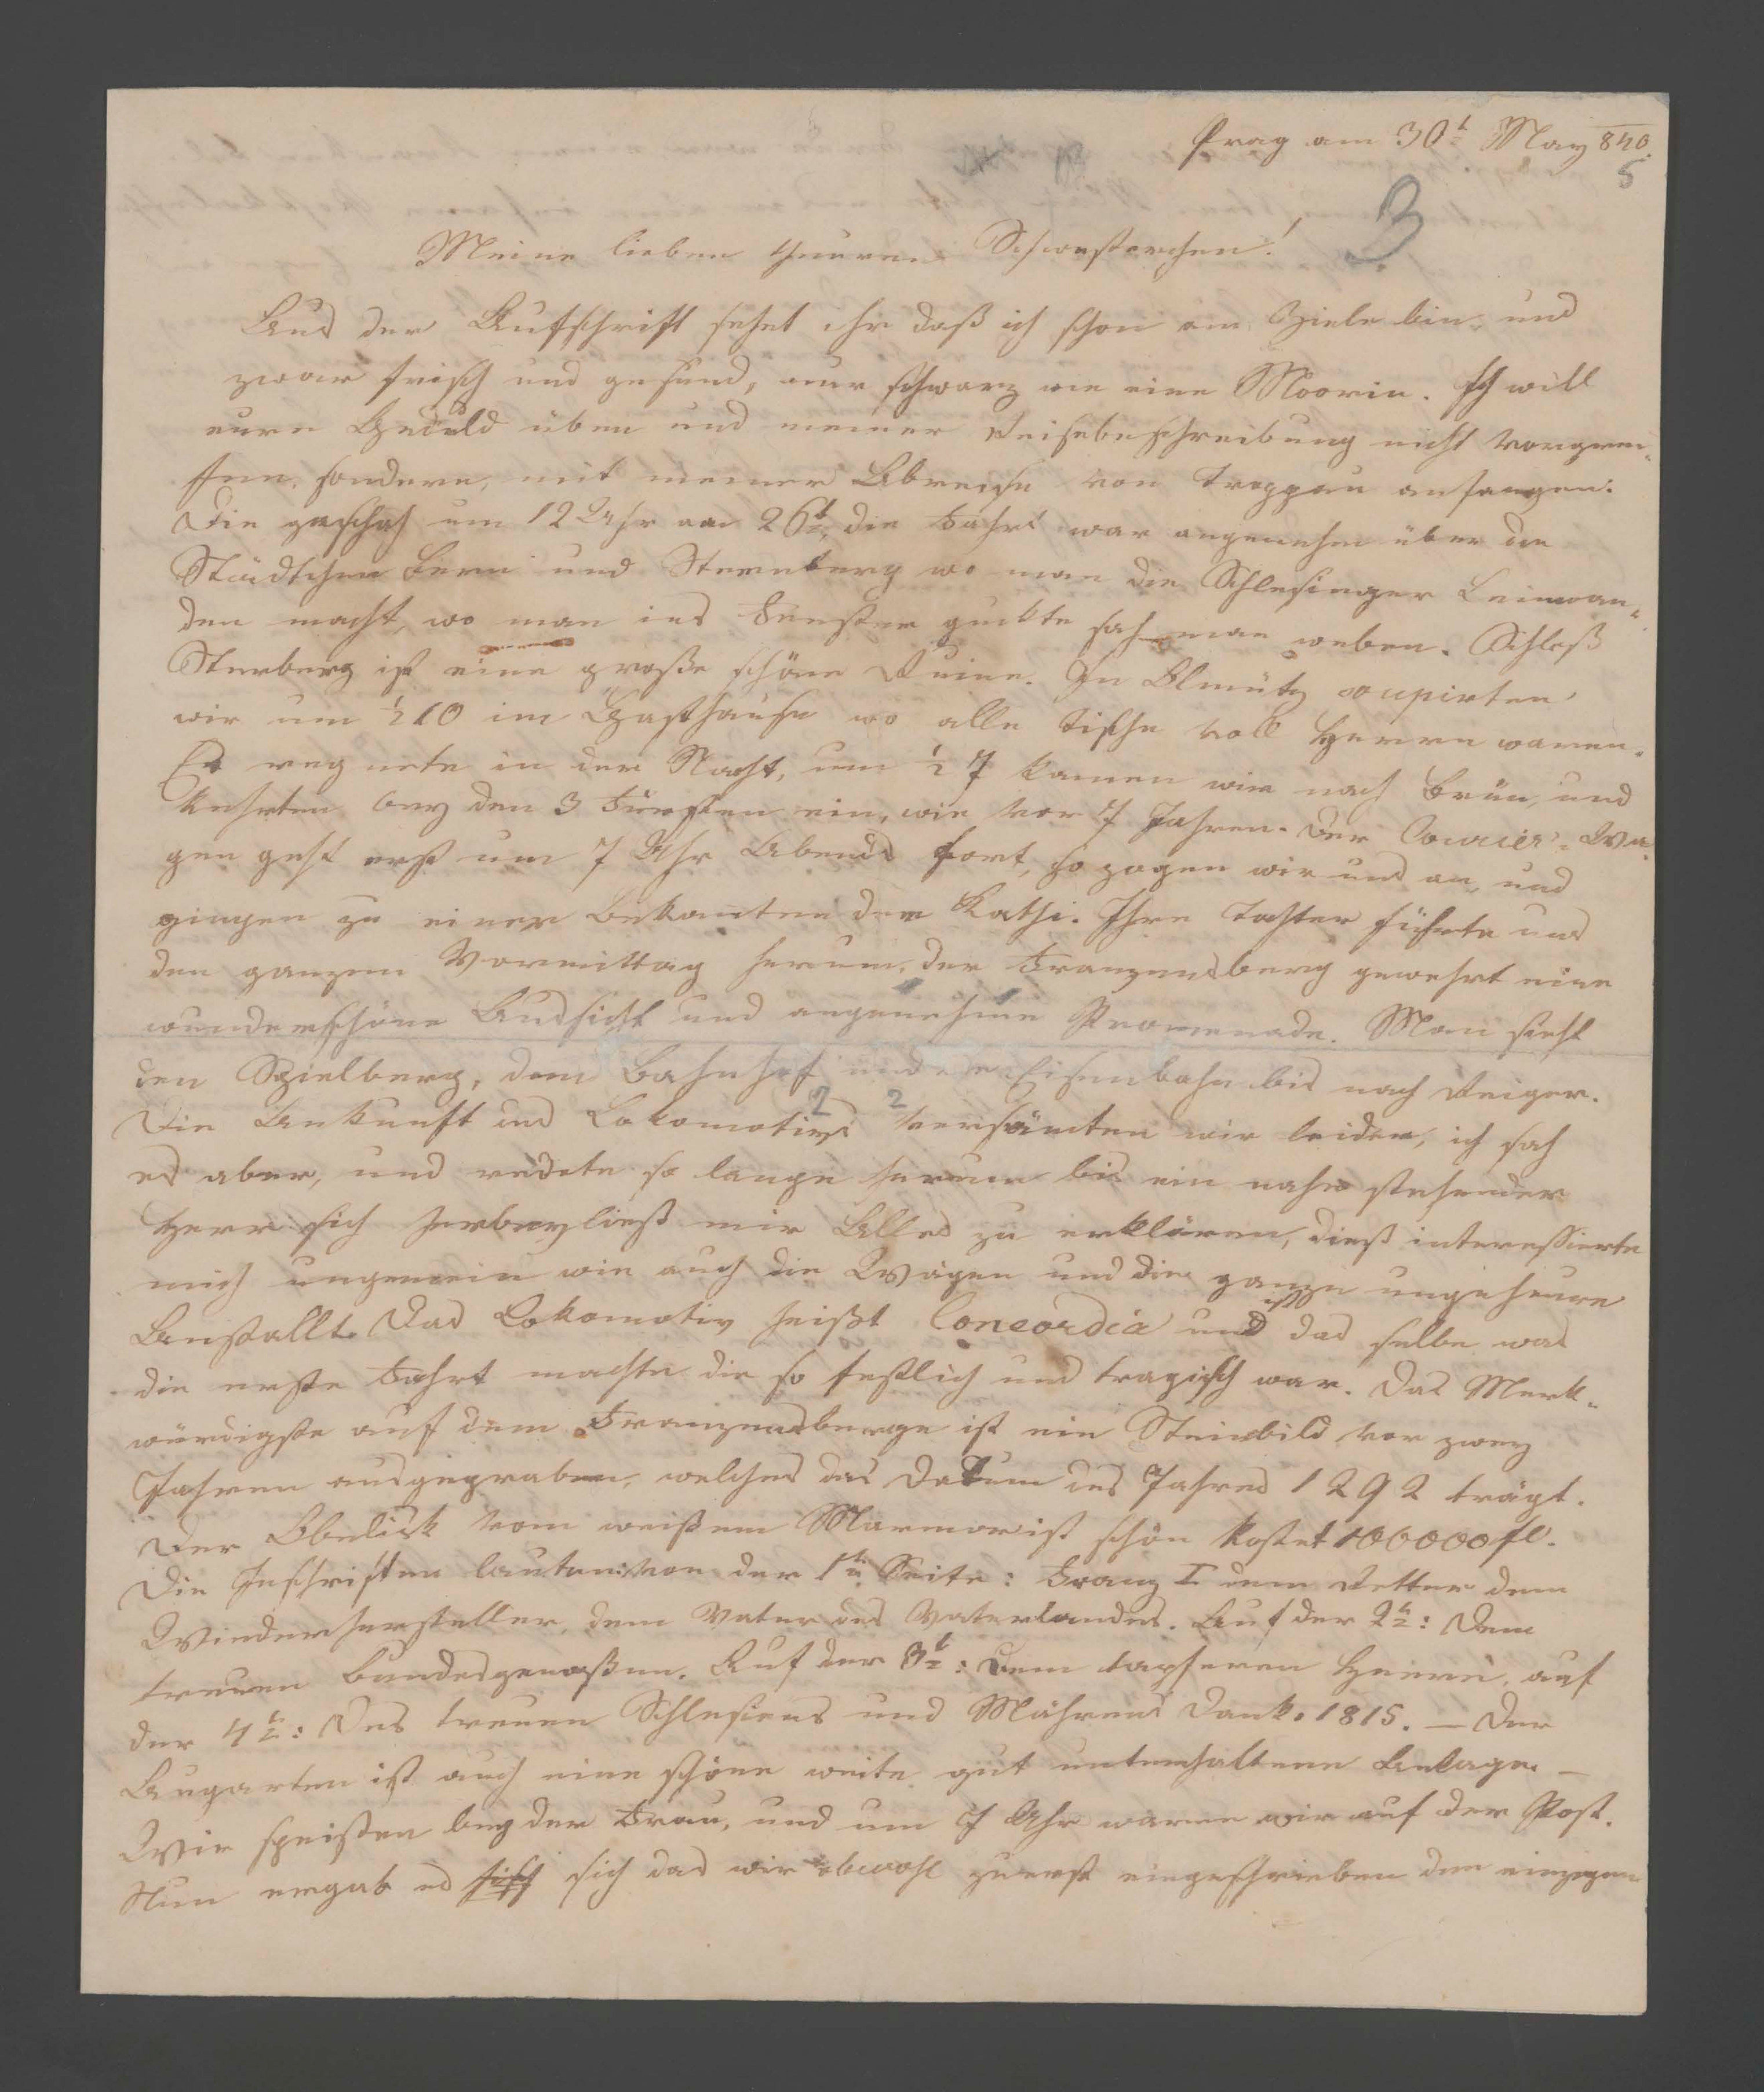 Prag am 30t May 840.
5
3
Meine lieben theuren Schwesterchen!
Aus der Aufschrift sehet ihr daß ich schon am Ziele bin, und
zwar frisch und gesund, nur schwarz wie eine Moorin. Ich will
eure Geduld üben und meiner Reisebeschreibung nicht vorgrei-
fen, sondern, mit meiner Abreise von Troppau anfangen.
Die geschah um 12 Uhr am 26t, die Fahrt war angenehm über die
Städtchen Bern und Sternberg wo man die Schlesinger Leinwan-
den macht, wo man ins Fenster guckte sah man weben. Schloß
Sterberg ist eine große schöne Ruine. In Olmütz
wir um ½10 im Gasthause wo alle Tische voll Herrn waren.
Es regnete in der Nacht, um ½7 kamen wir nach Brün, und
kehrten bey den 3 Fürsten ein, wie vor 7 Jahren. Der Courier-Wa-
gen geht erst um 7 Uhr Abends fort, so zogen wir uns an, und
gingen zu einer Bekanten der Kathi. Ihre Tochter führte uns
den ganzen Vormittag herum, der Franzensberg gewehrt eine
wunderschöne Aussicht und angenehme Promenade. Man sieht
den Spielberg, dem Bahnhof und die Eisenbahn bis nach Reiger.
2 2
Die Ankunft des Lokomotivs versäumten wir leider, ich sah
es aber, und redete so lange herum bis ein nahe stehender
Herr sich herbeyließ mir Alles zu erklären, dieß interessierte
mich ungemein wie auch die Wägen und die ganze ungeheure
Anstallt. Das Lokomotiv heißt Concordia und ist das selbe was
die erste Fahrt machte die so festlich und tragisch war. Das Merk-
würdigste auf dem Franzensberge ist ein Steinbild vor zwey
Jahren ausgegraben, welches das Datum des Jahres 1292 trägt.
Der Obelisk vom weißem Marmor ist schön kostet 100000 fl.
Die Inschriften lauten: von der 1ten Seite: Franz I dem Retter dem
Wiederhersteller, dem Vater des Vaterlandes. Auf der 2t: Dem
treuen Bundesgenoßen. Auf der 3t: Dem tapferen Heere, auf
der 4t: Des treuen Schlesiens und Mährens Dank. 1815. – Der
Augarten ist auch eine schöne weite gut unterhaltene Anlage. –
Wir speisten bey der Frau, und um 7 Uhr waren wir auf der Post.
Nun ergab es sich das wir obwohl zuerst eingeschrieben den einzigen